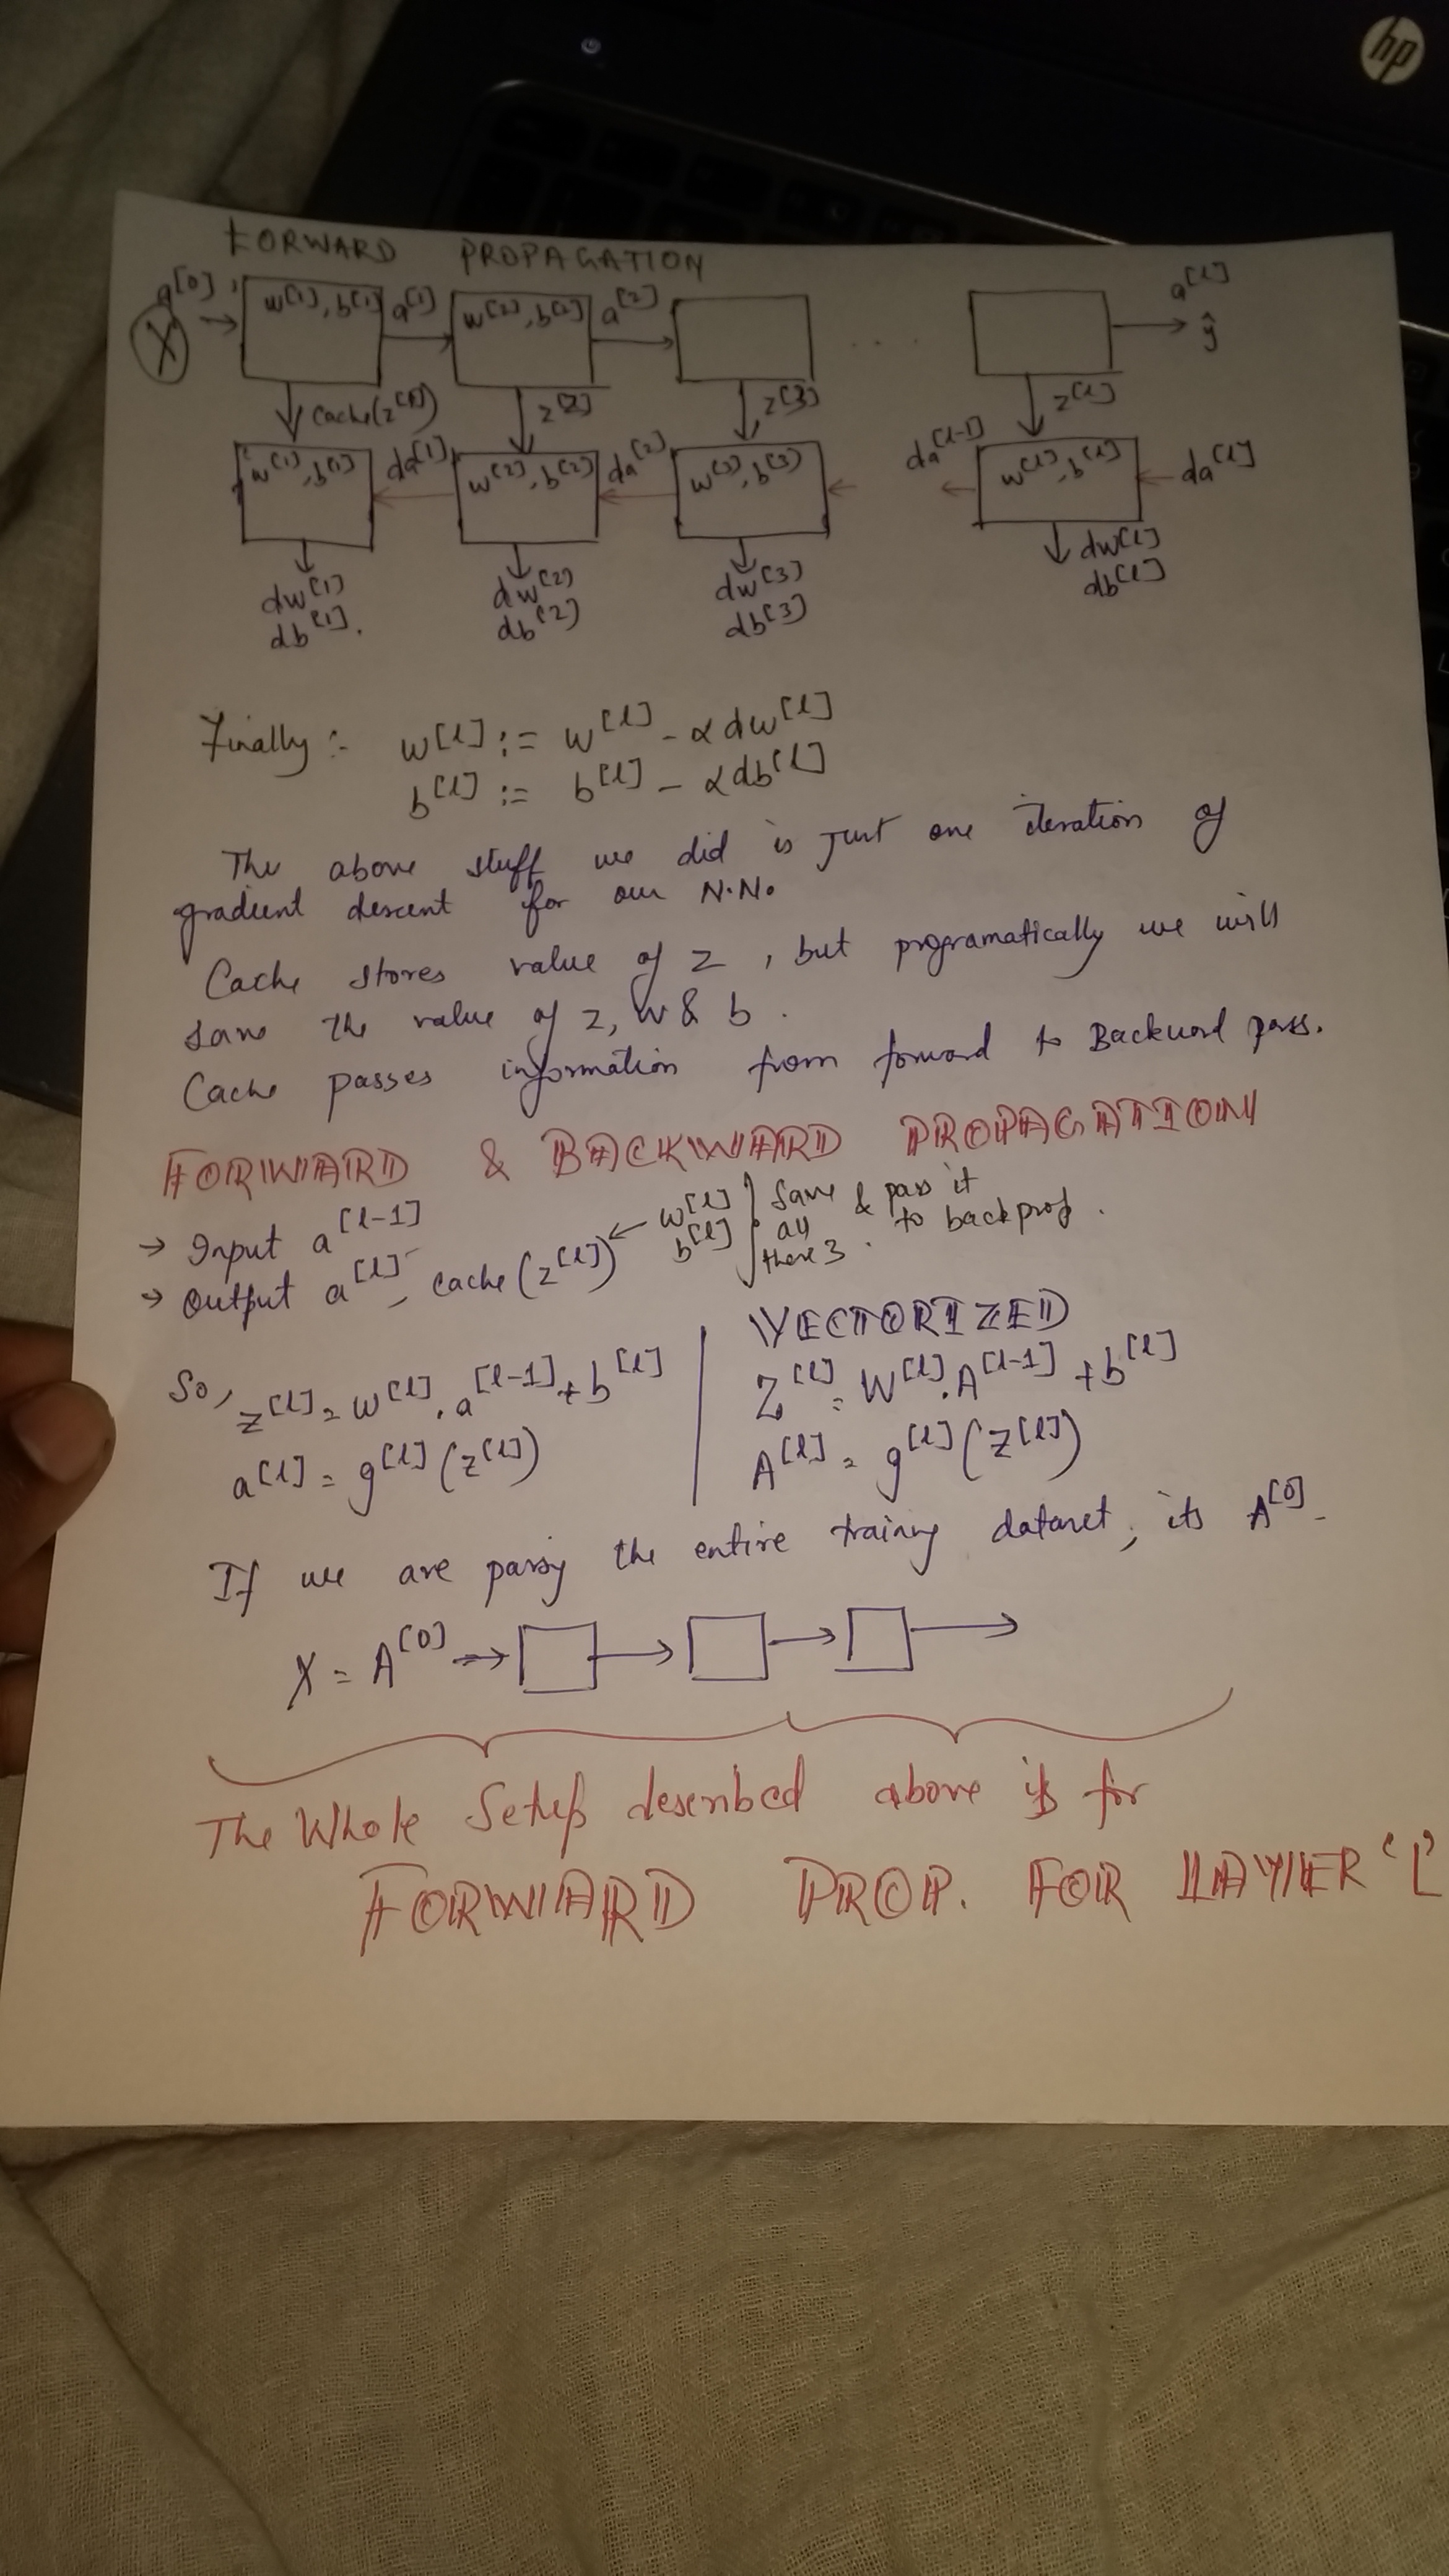 hp
FORWARD PROPAGATION
a[0], w[1], b[1] a[1] w[2], b[2] a[2] a[l]
X .... ŷ
Cache(z[1]) z[2] z[3] z[l]
w[1], b[1] da[1] w[2], b[2] da[2] w[3], b[3] da[l-1] w[l], b[l] da[l]
dw[1] dw[2] dw[3] dw[l]
db[1]. db[2] db[3] db[l]
Finally :- w[l] := w[l] - α dw[l]
b[l] := b[l] - α db[l]
The above stuff we did is just one iteration of
gradient descent for our N.N.
Cache stores value of z, but programatically we will
save the value of z, w & b.
Cache passes information from forward to Backward pass.
FORWARD & BACKWARD PROPAGATION
→ Input a[l-1]
→ Output a[l], cache(z[l]) ← w[l] b[l] } save & pass it all to backprop. these 3.
VECTORIZED
So, z[l] = w[l] . a[l-1] + b[l] | Z[l] = W[l] . A[l-1] + b[l]
a[l] = g[l](z[l]) | A[l] = g[l](z[l])
If we are the entire dataset, its A[0].
X = A[0] → → → →
The Whole Setup described above is for
FORWARD PROP. FOR LAYER 'L'